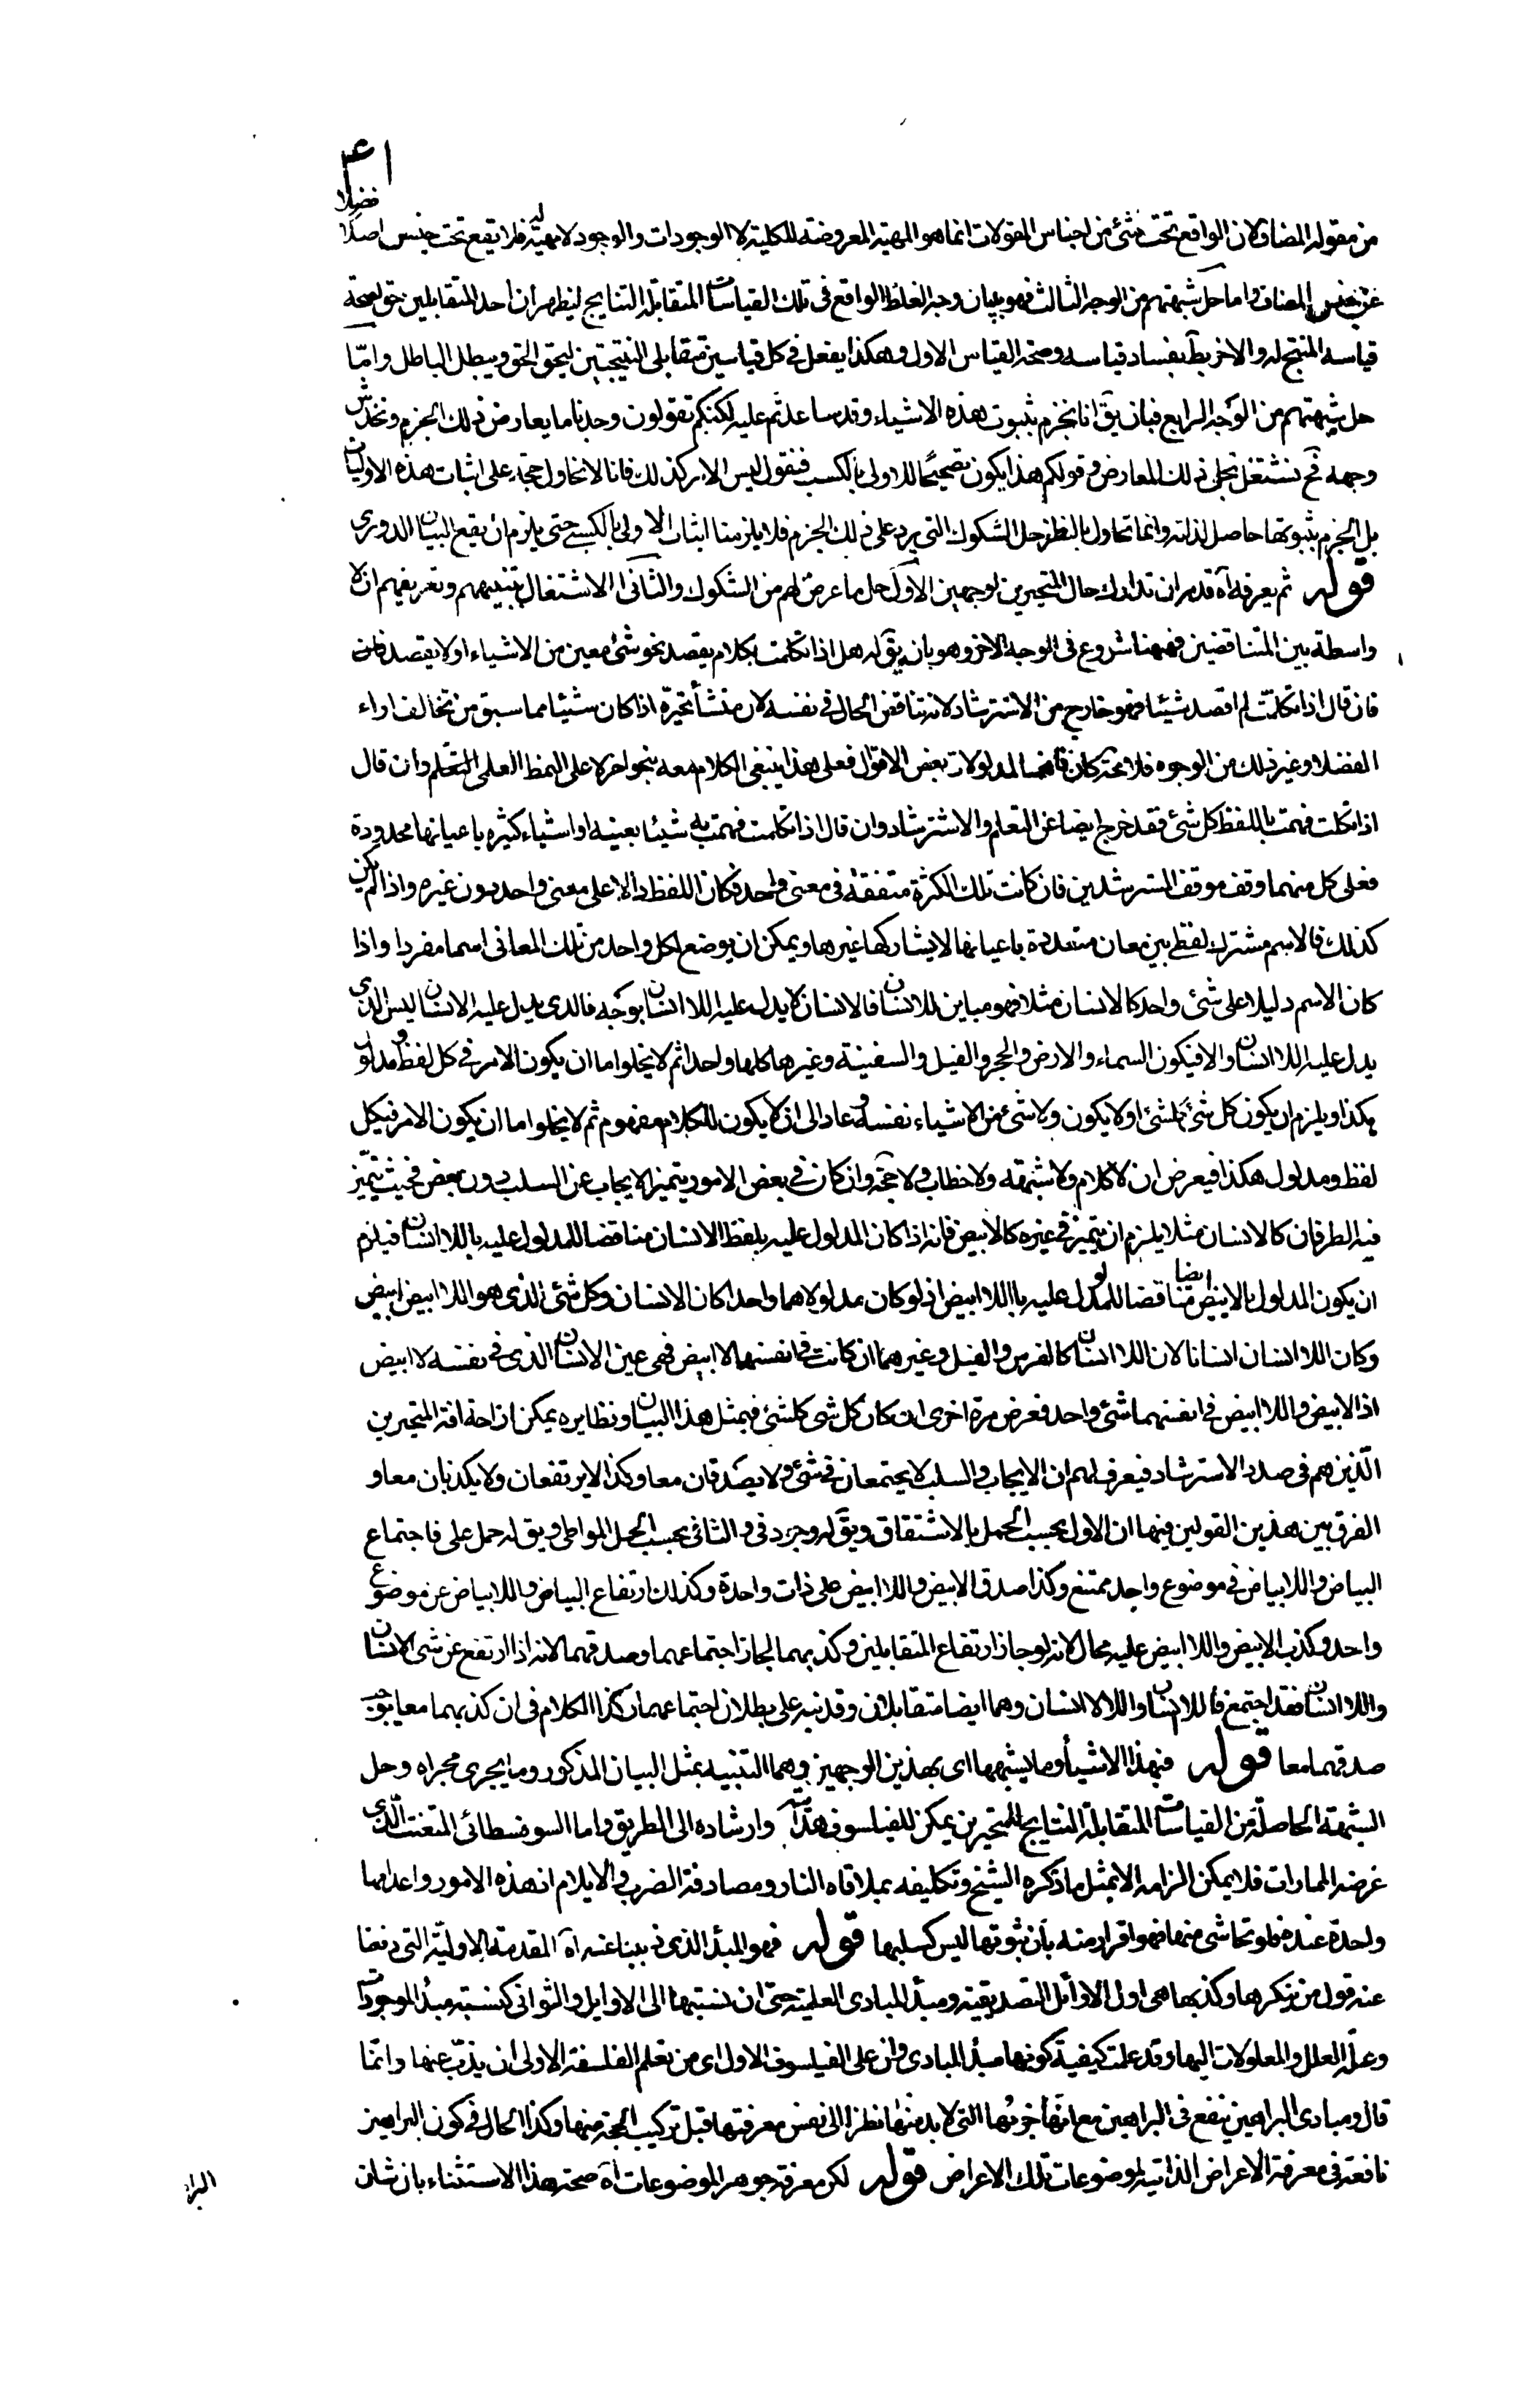 ٤١
فضلا
من مقولة المضاف لان الواقع تحت شئ من اجناس المقولات انما هو المهية المعروضة للكلية لا الوجودات والوجود لا مهية له فلا يقع تحت جنس اصلا
عن جنس المضاف واما حل شبهتهم من الوجه الثالث فهو ببيان وجه الغلط الواقع فى تلك القياسات المتقابلة النتايج ليظهر ان احد المتقابلين حق لصحة
قياسه المنتج له والاخر بط بفساد قياسه وصحة القياس الاول وهكذا يفعل فى كل قياسين متقابلى النتيجتين ليحق الحق ويبطل الباطل وامّا
حل شبهتهم من الوجه الرابع فبان يق انا نجزم بثبوت هذه الاشياء وقد ساعدتم عليه لكنكم تقولون وجدنا ما يعارض ذلك الجزم ونخدش
وجهه فح نشتغل بحل ذلك المعارض وقولكم هذا يكون تصحيحا للاولى بالكسب فنقول ليس الامر كذلك فانا لا نحاول حجة على اثبات هذه الاوليات
بل الجزم بثبوتها حاصل لذاته وانما نحاول بالنظر حل الشكوك التى يرد على ذلك الجزم فلا يلزمنا اثبات الاولى بالكسب حتى يلزم ان يقع البيان الدورى
قوله ثم يعرفه اه قد مر ان تدارك حال المتحيرين لوجهين الاول حل ما عرض لهم من الشكوك والثانى الاشتغال بتنبيههم وتعريفهم ان لا
واسطة بين المتناقضين فههنا شروع فى الوجه الاخر وهو بان يق له هل اذا تكلمت بكلام يقصد نحو شئ معين من الاشياء او لا يقصد فان
فان قال اذا تكلمت لم اقصد شيئا فهو خارج من الاسترشاد لانه تناقض الحال فى نفسه لان منشأ تحيره اذا كان شيئا مما سبق من تخالف اراء
الفضلا وغير ذلك من الوجوه فلا محة كان فاهما لمدلولات بعض الاقوال فعلى هذا ينبغى الكلام معه بنحو اخر لا على النمط العلمى التعلم وان قال
اذا تكلمت فهمت باللفظ كل شئ فقد خرج ايضا عن التعلم والاسترشاد وان قال اذا تكلمت فهمت به شيئا بعينه او اشياء كثيرة باعيانها محدودة
فعلى كل منهما وقف موقف المسترشدين فان كانت تلك الكثرة متفقة فى معنى واحد فكان اللفظ دالا على معنى واحد دون غيره واذا لم يكن
كذلك فالاسم مشترك لفظى بين معان متعددة باعيانها لا يشاركها غيرها ويمكن ان يوضع لكل واحد من تلك المعانى اسما مفردا واذا
كان الاسم دليلا على شئ واحد كالانسان مثلا فهو مباين للاانسان فالانسان لا يدل عليه اللا انسان بوجه فالذى يدل عليه الانسان ليس الذى
يدل عليه اللا انسان والا فيكون السماء والارض والحجر والفيل والسفينة وغيرها كلها واحدا ثم لا يخلوا اما ان يكون الامر فى كل لفظ ومدلول
هكذا ويلزم ان يكون كل شئ كلشئ او لا يكون ولا شئ من الاشياء نفسه وعاد الى ان لا يكون للكلام مفهوم ثم لا يخلوا اما ان يكون الامر فى كل
لفظ ومدلول هكذا فيعرض ان لا كلام ولا شبهة ولا خطاب ولا حجة وان كان فى بعض الامور يتميز الايجاب عن السلب دون بعض فحيث يتميّز
فيه الطرفان كالانسان مثلا يلزم ان يتميز فى غيره كالابيض فانه اذا كان المدلول عليه بلفظ الانسان مناقضا للمدلول عليه باللا انسان فيلزم
ان يكون المدلول بالابيض ايضا مناقضا للمدلول عليه باللا ابيض اذ لو كان مدلولاهما واحدا كان الانسان وكل شئ الذى هو اللا ابيض ابيض
وكان اللا انسان انسانا لان اللا انسان كالفرس والفيل وغيرهما ان كانت فى انفسها لا ابيض فهى عين الانسان الذى فى نفسه لا ابيض
اذ الابيض واللا ابيض فى انفسهما شئ واحد فعرض مرة اخرى ان كان كل شى كلشئ فبمثل هذا البيان ونظايره يمكن ازاحة افة المتحيرين
الّذين هم فى صدد الاسترشاد فيعرف لهم ان الايجاب والسلب لا يجتمعان فى شئ ولا يصدقان معا وكذا لا يرتفعان ولا يكذبان معا و
الفرق بين هذين القولين فيها ان الاول بحسب الحمل بالاشتقاق ويق له وجود فى والثانى بحسب الحمل المواطى ويق له حمل على فاجتماع
البياض واللا بياض فى موضوع واحد ممتنع وكذا صدق الابيض واللا ابيض على ذات واحدة وكذلك ارتفاع البياض واللا بياض عن موضوع
واحد وكذب الابيض واللا ابيض عليه محال لانه لو جاز ارتفاع المتقابلين وكذبهما لجاز اجتماعهما وصدقهما لانه اذا ارتفع عن شى الانسان
واللا انسان فقد اجتمع فيه اللا انسان واللا لا انسان وهما ايضا متقابلان وقد نبه على بطلان اجتماعهما وكذا الكلام فى ان كذبهما معا يوجب
صدقهما معا قوله فبهذا الاشياء وما يشبهها اى بهذين الوجهين وهما التنبيه بمثل البيان المذكور وما يجرى مجراه وحل
الشبهة الحاصلة من القياسات المتقابلة النتايج للمتحيرين يمكن للفيلسوف هدايته وارشاده الى الطريق واما السوفسطائى المتعنت الذى
غرضه المماراة فلا يمكن الزامه الا بمثل ما ذكره الشيخ وتكليفه بملاقاه النار ومصادفة الضرب والايلام اذ هذه الامور واعدامها
واحدة عنده فلو تحاشى منها فهو اقرار منه بان ثبوتها ليس كسلبها قوله فهو المبدأ الذى ذببنا عنه اه المقدمة الاوليّة التى دفعنا
عنه قول من ينكرها وكذبها هى اول الاوائل التصديقية ومبدأ المبادى العلمية حتى ان نسبتها الى الاوايل والثوانى كنسبة مبدأ الموجودات
وعلّة العلل والمعلولات اليها وقد علمت كيفية كونها مبدأ المبادى وان على الفيلسوف الاول اى من تعلم الفلسفة الاولى ان يذبّ عنها وانمّا
قال ومبادى البراهين ينفع فى البراهين مع انها جزئها التى لا بد منها نظرا الى نفس معرفتها قبل تركيب الحجة منها وكذا الحال فى كون البراهين
نافعة فى معرفة الاعراض الذاتية لموضوعات تلك الاعراض قوله لكن معرفة جوهر الموضوعات اه صحة هذا الاستثناء بان شان
البرا